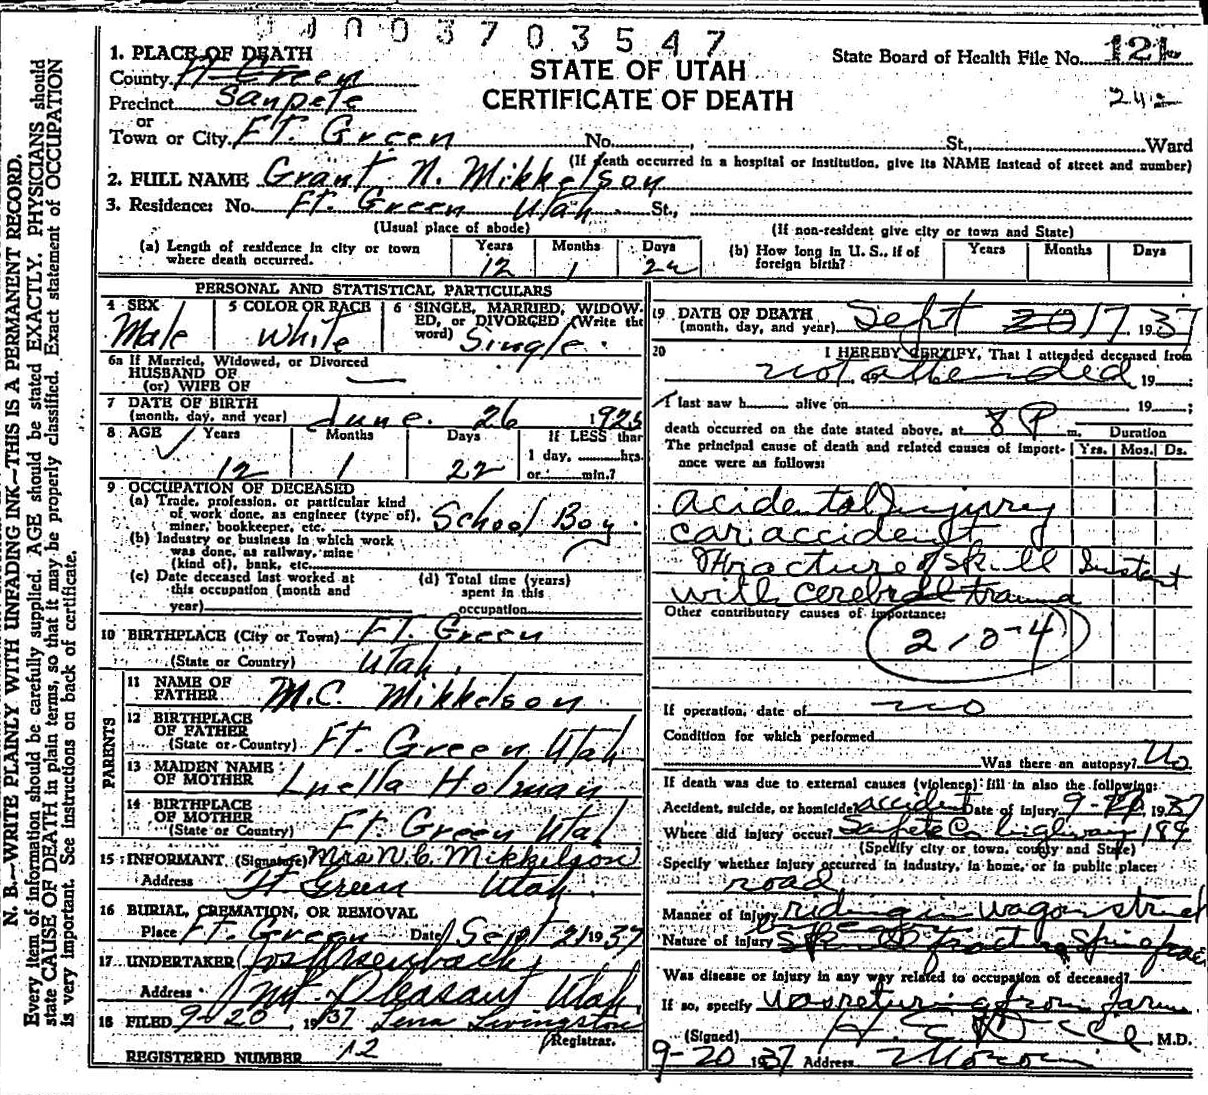 91003703547
1. PLACE OF DEATH
County Ft Green
Precinct Sanpete
or
Town or City Ft. Green No. , St., Ward
STATE OF UTAH
CERTIFICATE OF DEATH
State Board of Health File No. 121
(If death occurred in a hospital or institution, give its NAME instead of street and number)
2. FULL NAME Grant N. Mikkelson
3. Residence: No. Ft. Green Utah St.,
(Usual place of abode) (If non-resident give city or town and State)
(a) Length of residence in city or town where death occurred. Years 12 Months 1 Days 22
(b) How long in U. S., if of foreign birth? Years Months Days
PERSONAL AND STATISTICAL PARTICULARS
4 SEX Male
5 COLOR OR RACE White
6 SINGLE, MARRIED, WIDOWED, or DIVORCED (Write the word) Single
6a If Married, Widowed, or Divorced
HUSBAND OF
(or) WIFE OF
7 DATE OF BIRTH
(month, day, and year) June 26 1925
8 AGE Years 12 Months 1 Days 22 If LESS than 1 day, hrs. or min.?
9 OCCUPATION OF DECEASED
(a) Trade, profession, or particular kind of work done, as engineer (type of), miner, bookkeeper, etc. School Boy
(b) Industry or business in which work was done, as railway, mine (kind of), bank, etc.
(c) Date deceased last worked at this occupation (month and year)
(d) Total time (years) spent in this occupation
10 BIRTHPLACE (City or Town) Ft. Green
(State or Country) Utah.
PARENTS
11 NAME OF FATHER M.C. Mikkelson
12 BIRTHPLACE OF FATHER
(State or Country) Ft. Green Utah
13 MAIDEN NAME OF MOTHER Luella Holman
14 BIRTHPLACE OF MOTHER
(State or Country) Ft Green Utah
15 INFORMANT (Signature) Mrs N.C. Mikkelson
Address Ft. Green Utah.
16 BURIAL, CREMATION, OR REMOVAL
Place Ft. Green Date Sept 21 1937
17 UNDERTAKER
Address Mt Pleasant Utah
18 FILED 9-20, 1937 Lena Livingston
Registrar.
REGISTERED NUMBER 12
19 DATE OF DEATH
(month, day, and year) Sept 20 17 1937
20 I HEREBY CERTIFY, That I attended deceased from
not attended, 19 ;
I last saw h alive on 19 ;
death occurred on the date stated above, at 8 P m. Duration
The principal cause of death and related causes of importance were as follows: Yrs. Mos. Ds.
acidental injury
car accident
Fracture of skull Instant
with cerebral trauma
Other contributory causes of importance:
210-4
If operation, date of no
Condition for which performed
Was there an autopsy? No
If death was due to external causes (violence) fill in also the following:
Accident, suicide, or homicide? accident Date of injury 9- 1937
Where did injury occur? Sanpete Co. highway 189
(Specify city or town, county and State)
Specify whether injury occurred in industry, in home, or in public place:
road
Manner of injury riding in wagon struck
Nature of injury Skull fracture Spine frac
Was disease or injury in any way related to occupation of deceased?
If so, specify was returing from farm
(Signed) M.D.
9-20 1937 Address Moroni
N. B.—WRITE PLAINLY WITH UNFADING INK—THIS IS A PERMANENT RECORD.
Every item of information should be carefully supplied. AGE should be stated EXACTLY. PHYSICIANS should
state CAUSE OF DEATH in plain terms, so that it may be properly classified. Exact statement of OCCUPATION
is very important. See instructions on back of certificate.